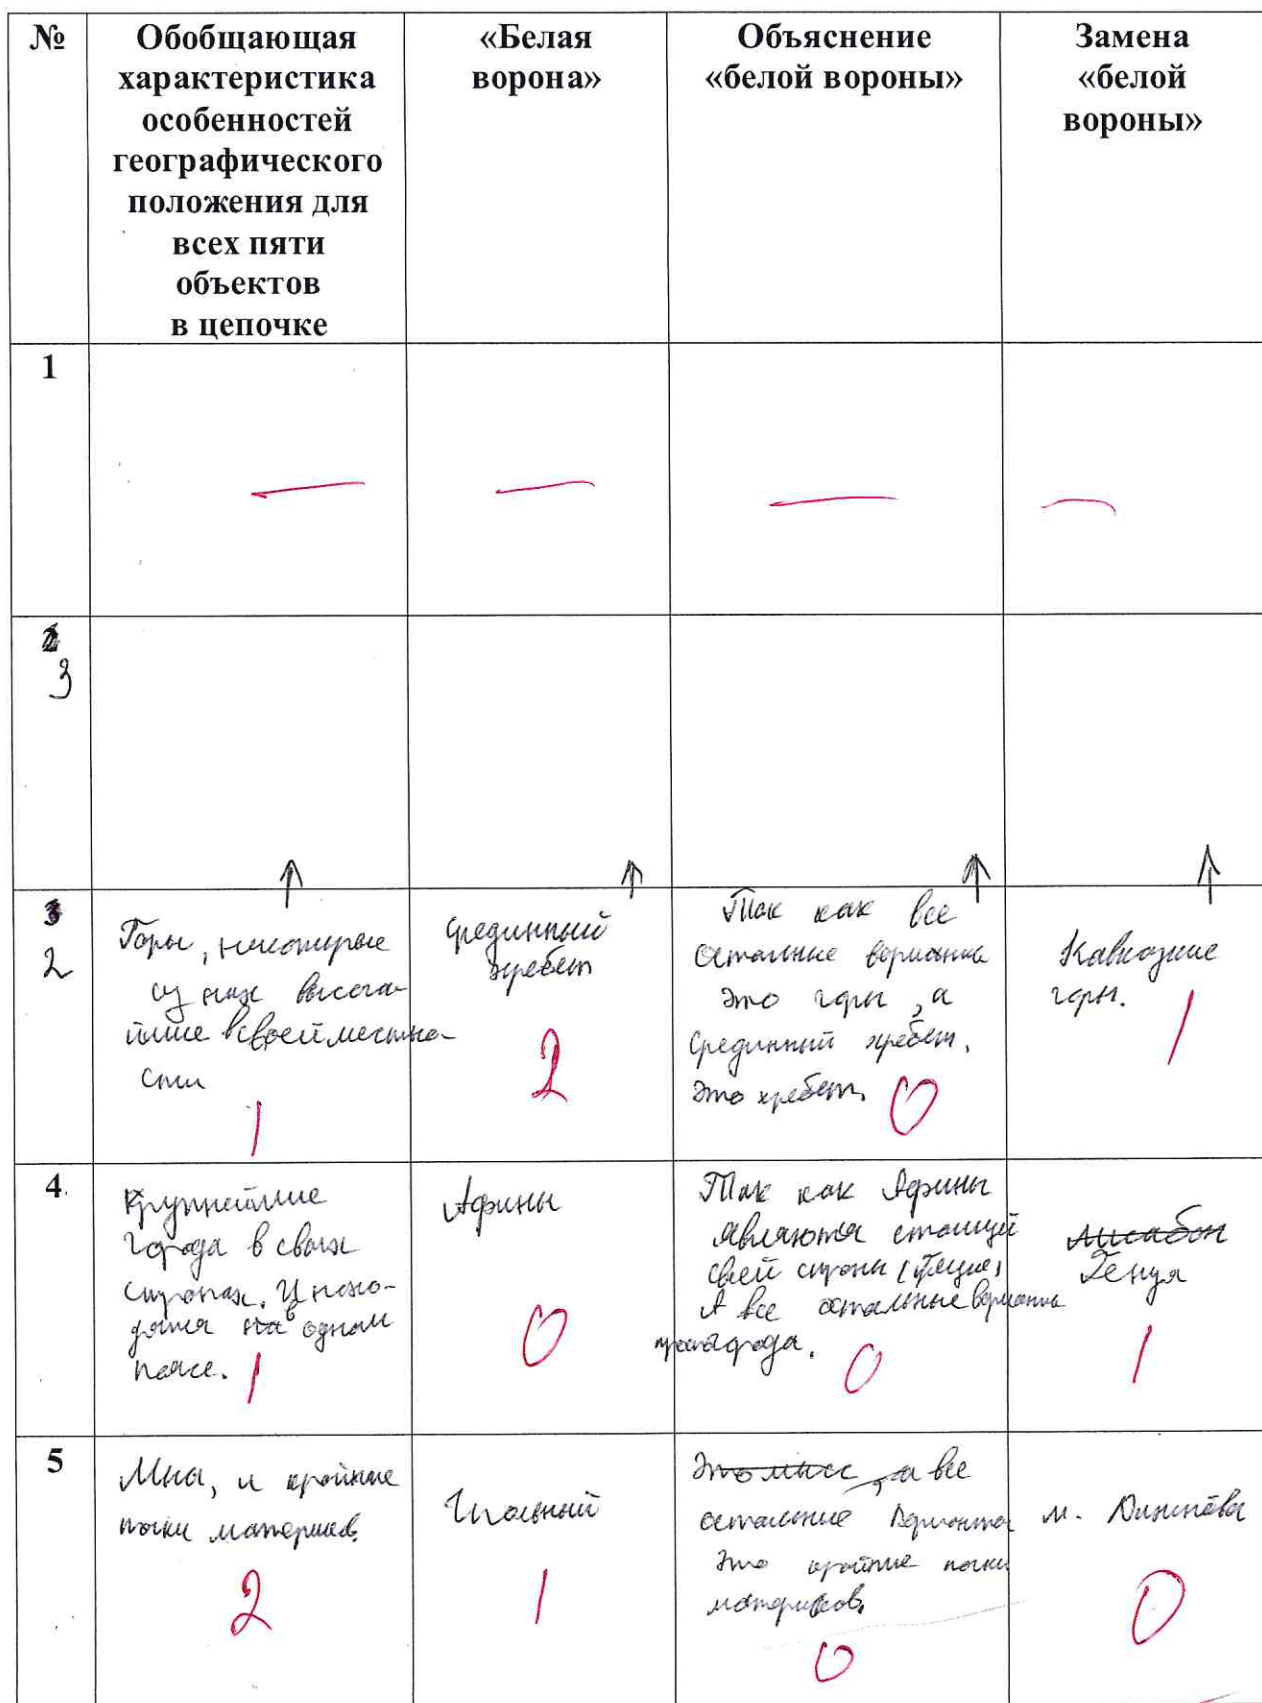 №
Обобщающая
характеристика
особенностей
географического
положения для
всех пяти
объектов
в цепочке
«Белая
ворона»
Объяснение
«белой вороны»
Замена
«белой
вороны»
1
3
2
Горы, некоторые
из них высоча-
йшие в своей местно-
сти
1
Срединный
хребет
2
Так как все
остальные варианты
это горы, а
Срединный хребет,
это хребет.
0
Кавказкие
горы.
1
4.
Крупнейшие
города в своих
странах. И нахо-
дятся в одном
поясе.
1
Афины
0
Так как Афины
являются столицей
своей страны (Греция)
А все остальные варианты
просто города.
0
Генуя
1
5
Мыс, и крайние
точки материков.
2
Игольный
1
Это мыс, а все
остальные варианты
это крайние точки
материков.
0
м.
0